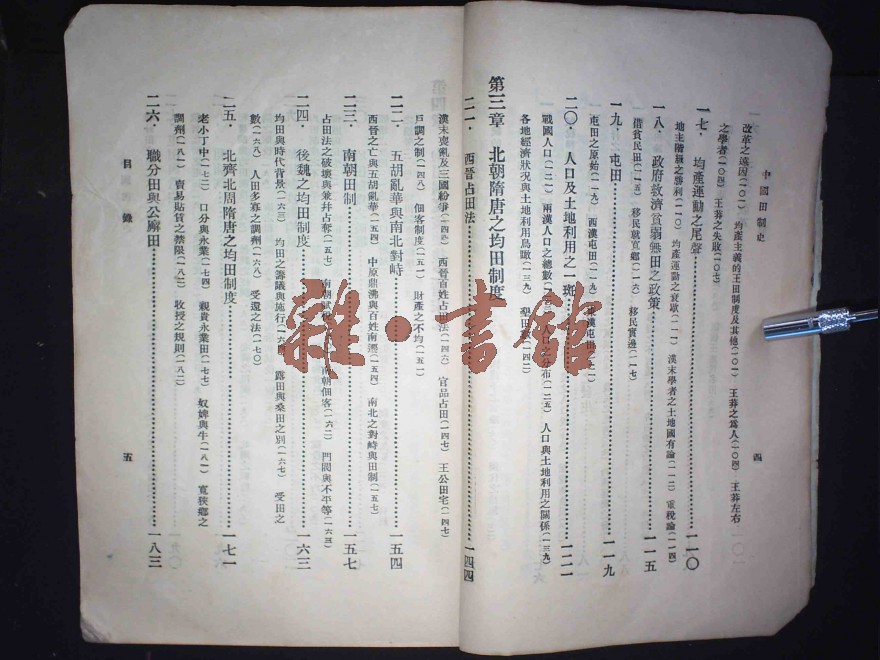 中國田制史
四
改革之遠因(一〇一) 均產主義的王田制度及其他(一〇一) 王莽之為人(一〇四) 王莽左右
之學者(一〇四) 王莽之失敗(一〇七)
一七. 均產運動之尾聲……一一〇
地主階級之勝利(一一〇) 均產運動之衰歇(一一一) 漢末學者之土地國有論(一一二) 重稅論(一一四)
一八. 政府救濟貧弱無田之政策……一一五
借貧民田(一一五) 移民就寬鄉(一一六) 移民實邊(一一七)
一九. 屯田……一一九
屯田之原始(一一九) 西漢屯田(一一九) 東漢屯田(一二一)
二〇. 人口及土地利用之一斑……一二一
戰國人口(一二一) 兩漢人口之總數 布(一二五) 人口與土地利用之關係(一三九)
各地經濟狀況與土地利用鳥瞰(一三九) 墾田 (一四二)
第三章 北朝隋唐之均田制度
二一. 西晉占田法……一四四
漢末喪亂及三國紛爭(一四四) 西晉百姓占田法(一四六) 官品占田(一四七) 王公田宅(一四七)
戶調之制(一四八) 佃客制度(一五一) 財產之不均(一五一)
二二. 五胡亂華與南北對峙……一五四
西晉之亡與五胡亂華(一五四) 中原鼎沸與百姓南遷(一五四) 南北之對峙與田制(一五七)
二三. 南朝田制……一五七
占田法之破壞與兼并占奪(一五七) 南朝 南朝佃客(一六二) 門閥與不平等(一六三)
二四. 後魏之均田制度……一六三
均田與時代背景(一六三) 均田之籌議與施行(一六 露田與桑田之別(一六七) 受田之
數(一六八) 人田多寡之調劑(一六八) 受還之法(一七〇)
二五. 北齊北周隋唐之均田制度……一七一
老小丁中(一七二) 口分與永業(一七四) 親貴永業田(一七七) 奴婢與牛(一八一) 寬狹鄉之
調劑(一八一) 賣易貼賃之禁限(一八二) 收授之規則(一八二)
二六. 職分田與公廨田……一八三
目錄
五
雜·書館